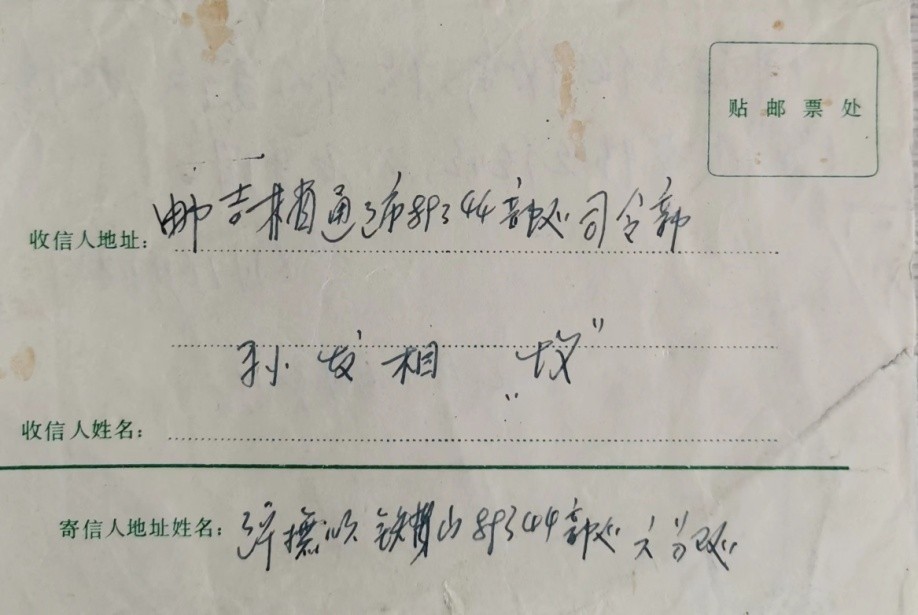 贴邮票处
收信人地址: 邮吉梢通辽市89344部队司令部
孙发相 "收"
收信人姓名:
寄信人地址姓名: 辽抚顺铁背山89344部队六分队